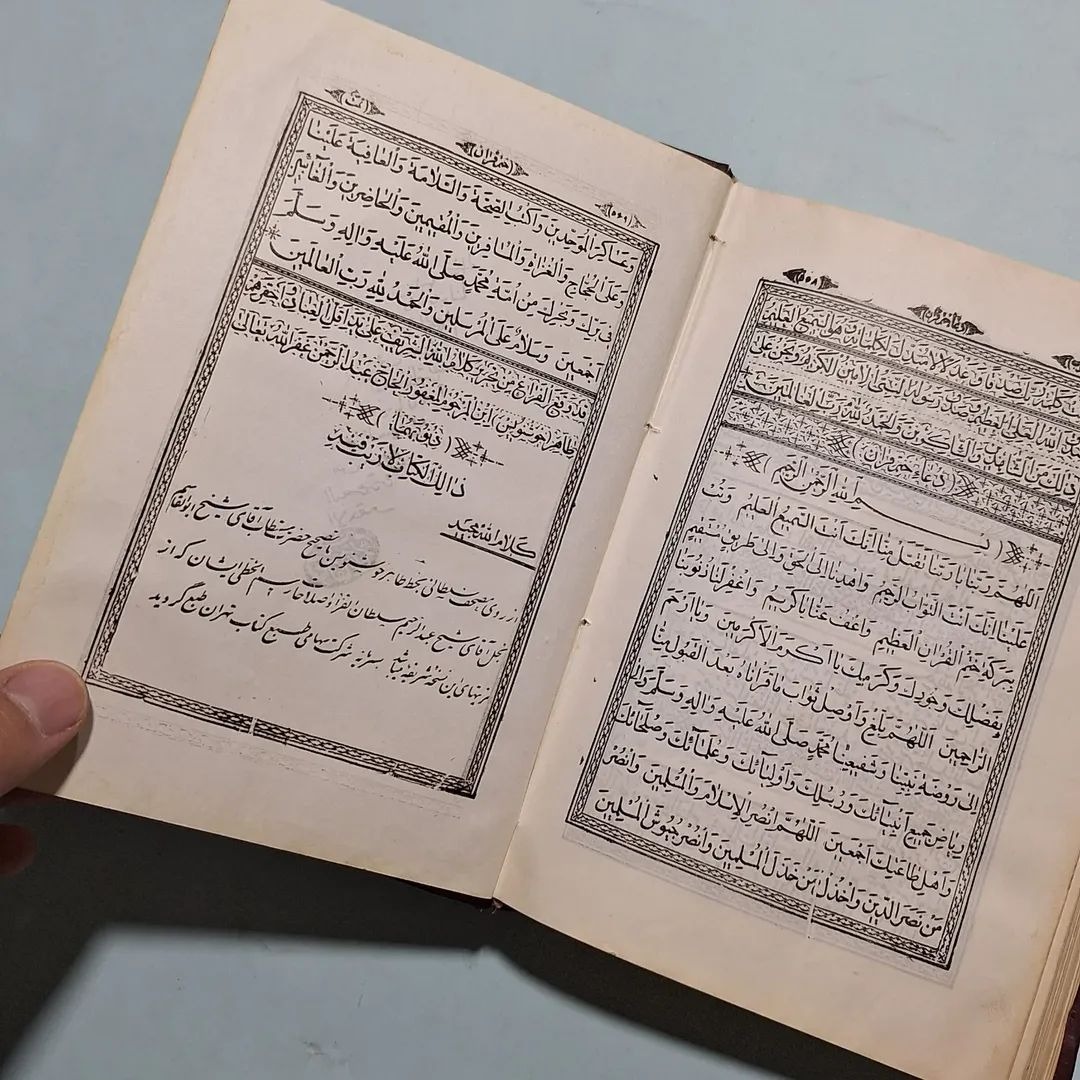 ﴿٥٥٨﴾
وتمت كلمة ربك صدقا وعدلا لا مبدل لكلماته وهو السميع العليم
صدق الله العلي العظيم وصدق رسوله النبي الامين الكريم ونحن على
ذلك من الشاهدين والشاكرين والحمد لله رب العالمين
﴿دعاء ختم قران﴾
﴿بسم الله الرحمن الرحيم﴾
اللهم ربنا يا ربنا تقبل منا انك انت السميع العليم وتب
علينا انك انت التواب الرحيم واهدنا الى الحق والى طريق مستقيم
ببركة ختم القران العظيم واعف عنا يا كريم واغفر لنا ذنوبنا
بفضلك وجودك وكرمك يا اكرم الاكرمين ويا ارحم
الراحمين اللهم بلغ واوصل ثواب ما قراناه بعد القبول منا
الى روضة نبينا وشفيعنا محمد صلى الله عليه واله وسلم والى
رياض جميع انبيائك ورسلك واوليائك وعلمائك وصلحائك
واهل طاعتك اجمعين اللهم انصر الاسلام والمسلمين وانصر
من نصر الدين واخذل من خذل المسلمين وانصر جيوش المسلمين
﴿تمت﴾
﴿ختم قران﴾
﴿٥٥٩﴾
وعساكر الموحدين واكتب الصحة والسلامة والعافية علينا
وعلى الحجاج والغزاة والمسافرين والمقيمين والحاضرين والغائبين
في برك وبحرك من امة محمد صلى الله عليه واله وسلم
اجمعين وسلام على المرسلين والحمد لله رب العالمين
قد وقع الفراغ من تحرير كلام الله الشريف على يد اقل العباد واحقرهم
طاهر خوشنويس ابن المرحوم المغفور الحاج عبد الرحمن غفر الله تعالى
﴿ذنوبهما﴾
ذالك الكتاب لا ريب فيه
كلام الله مجيد
از روى مصحف سلطانى بخط طاهر خوشنويس با تصحيح حضر مستطاب آقاى شيخ ابو القاسم
نجل آقاى شيخ عبد الرحيم سلطان القراء و اصلاحات رسم الخطى ايشان كه از
مزيتهاى اين نسخه شريفه ميباشد بسرمايه شركت سهامى طبع كتاب تهران طبع گرديد